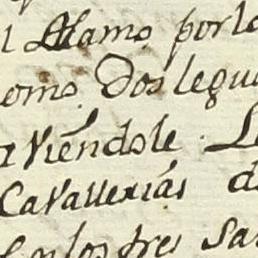 l Alamo por lo
omo Dos legua
viéndole Le
Cavallerias d
los tres sa